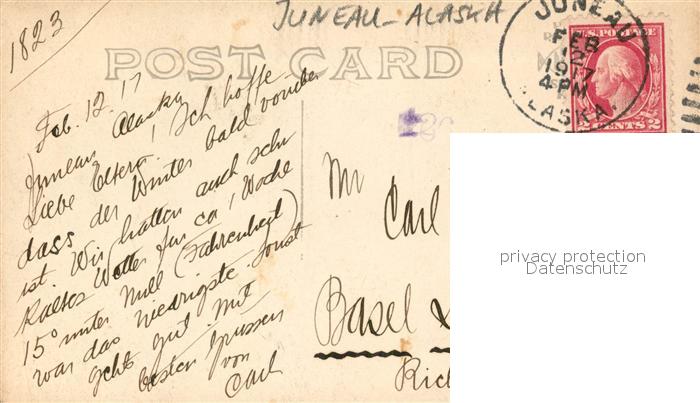 1823
JUNEAU - ALASKA
POST CARD
JUNEAU
FEB
12
1917
4 PM
ALASKA.
U.S. POSTAGE
2 CENTS 2
Feb. 12. 17
Juneau Alaska
Liebe Eltern! Ich hoffe
dass der Winter bald vorüber
ist. Wir hatten auch sehr
kaltes Wetter für ca 1 Woche
15° unter Null (Fahrenheit)
war das niedrigste. Sonst
gehts gut. Mit
besten Grüssen
von
Carl
Mr
Carl
Basel
privacy protection
Datenschutz